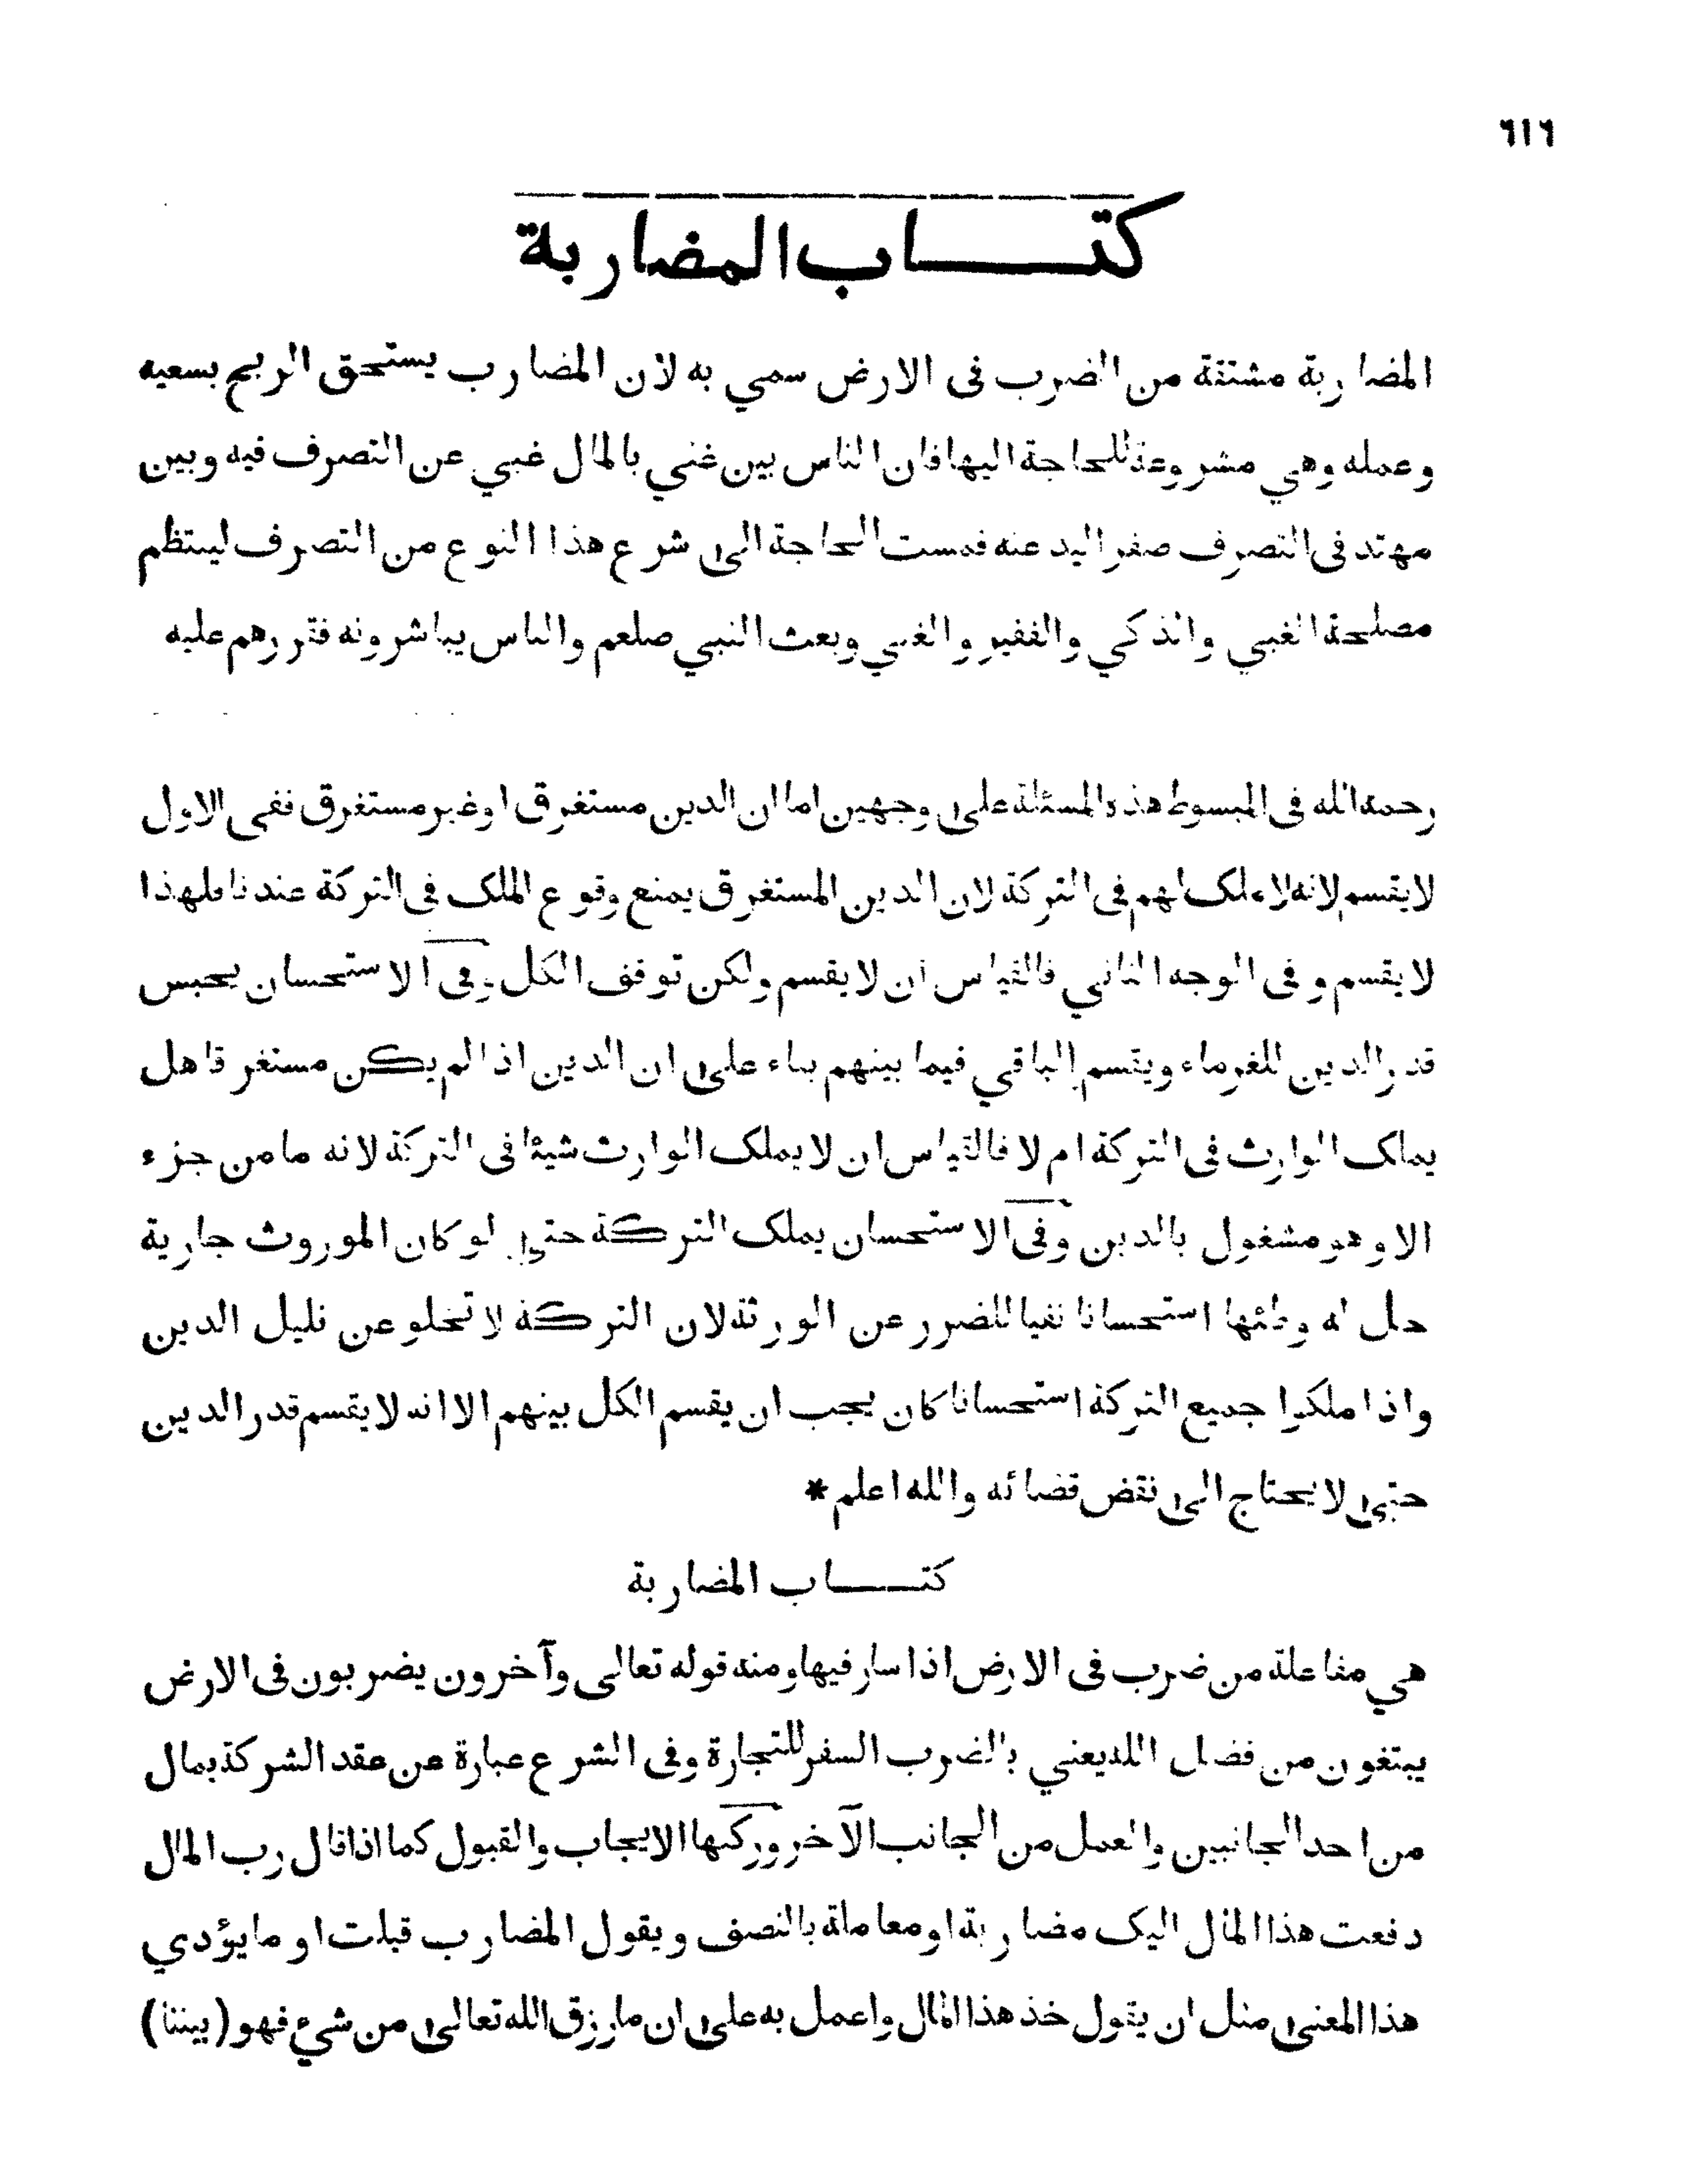 ٦١٦
كتاب المضاربة
المضاربة مشتقة من الضرب فى الارض سمي به لان المضارب يستحق الربح بسعيه
وعمله وهي مشروعة للحاجة اليها فان الناس بين غني بالمال غبي عن التصرف فيه وبين
مهتد فى التصرف صفر اليد عنه فمست الحاجة الى شرع هذا النوع من التصرف لينتظم
مصلحة الغبي والذكي والفقير والغني وبعث النبي صلعم والناس يباشرونه فقررهم عليه
رحمه الله فى المبسوط هذه المسئلة على وجهين اما ان الدين مستغرق اوغير مستغرق ففى الاول
لايقسم لانه لاملك لهم فى التركة لان الدين المستغرق يمنع وقوع الملك فى التركة عندنا فلهذا
لايقسم وفى الوجه الثاني فالقياس ان لايقسم ولكن توقف الكل وفى الاستحسان يحبس
قدر الدين للغرماء ويقسم الباقي فيما بينهم بناء على ان الدين اذا لم يكن مستغرقا هل
يملك الوارث فى التركة ام لا فالقياس ان لايملك الوارث شيئا فى التركة لانه مامن جزء
الا وهو مشغول بالدين وفى الاستحسان يملك التركة حتى لوكان الموروث جارية
حل له وطئها استحسانا نفيا للضرر عن الورثة لان التركة لاتخلو عن قليل الدين
واذا ملكوا جميع التركة استحسانا كان يجب ان يقسم الكل بينهم الا انه لايقسم قدر الدين
حتى لايحتاج الى نقض قضائه والله اعلم *
كتاب المضاربة
هي مفاعلة من ضرب فى الارض اذا سار فيها ومنه قوله تعالى وآخرون يضربون فى الارض
يبتغون من فضل الله يعني بالضرب السفر للتجارة وفى الشرع عبارة عن عقد الشركة بمال
من احد الجانبين والعمل من الجانب الآخر وركنها الايجاب والقبول كما اذا قال رب المال
دفعت هذا المال اليك مضاربة اومعاملة بالنصف ويقول المضارب قبلت او مايؤدي
هذا المعنى مثل ان يقول خذ هذا المال واعمل به على ان مارزق الله تعالى من شيء فهو (بيننا)